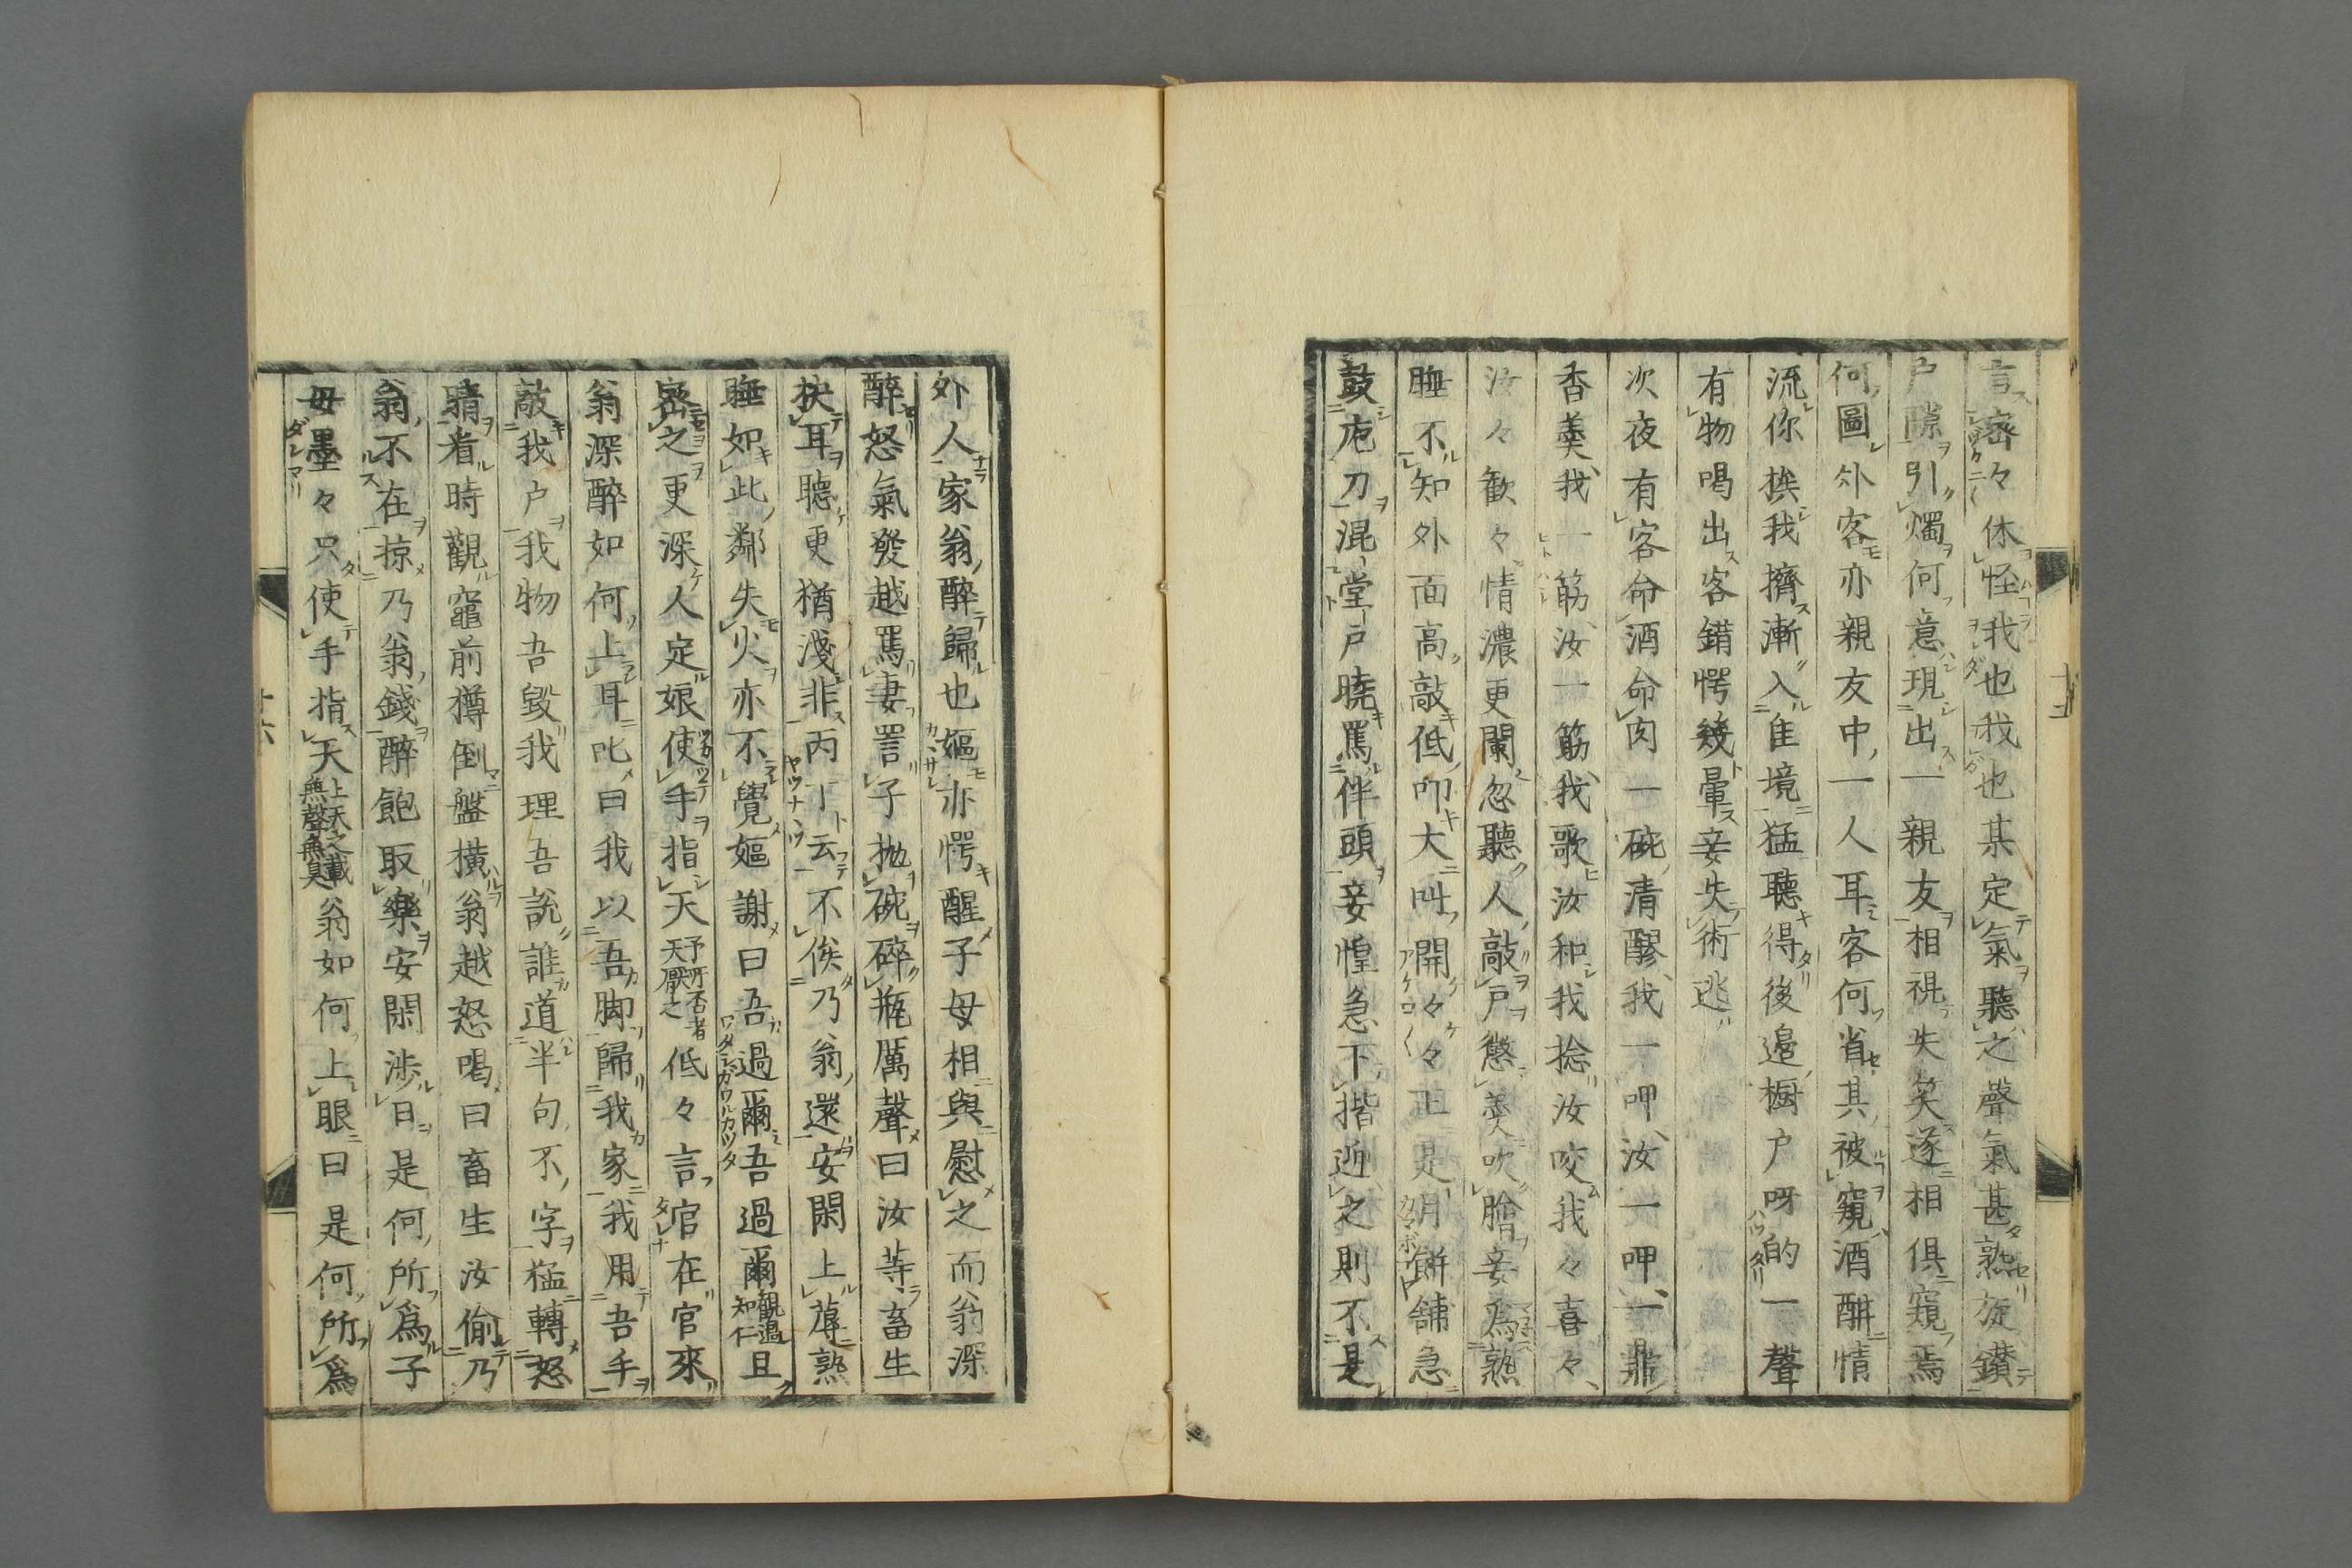 言密々休怪我也我也某定氣聽之聲氣甚熟旋鑽
戸隙引燭何意現出一親友相視失笑遂相俱窺焉
何圖外客亦親友中一人耳客何省其被窺酒酣情
流你挨我擠漸入佳境猛聽得後邊櫥戸呀的一聲
有物喝出客錯愕幾暈妾失術逃
次夜有客命酒命肉一碗清醪我一呷汝一呷一鼎
香羹我一筯汝一筯我歌汝和我捻汝咬我々喜々
汝々歓々情濃更闌忽聽人敲戸懲羹吹膾妾為熟
睡不知外面高敲低叩大叫開々々正是餅舗急
鼓庖刀混堂戸曉罵伴頭妾惶急下揩迎之則不是
十二
外人家翁醉歸也嫗亦愕醒子母相與慰之而翁深
醉怒氣發越罵妻詈子抛碗碎瓶厲聲曰汝等畜生
抉耳聽更猶淺非丙丁云不俟乃翁還安閑上蓐熟
睡如此鄰失火亦不覺嫗謝曰吾過爾吾過爾觀過知仁且
密之更深人定娘使手指天予所否者天厭之低々言官在官來
翁深醉如何上耳叱曰我以吾脚歸我家我用吾手
敲我戸我物吾毀我理吾說誰道半句不字猛轉怒
睛看時觀竈前樽倒盤橫翁越怒喝曰畜生汝偷乃
翁不在掠乃翁錢醉飽取樂安閑渉日是何所爲子
母墨々只使手指天上天之載無聲無臭翁如何上眼曰是何所爲
十六